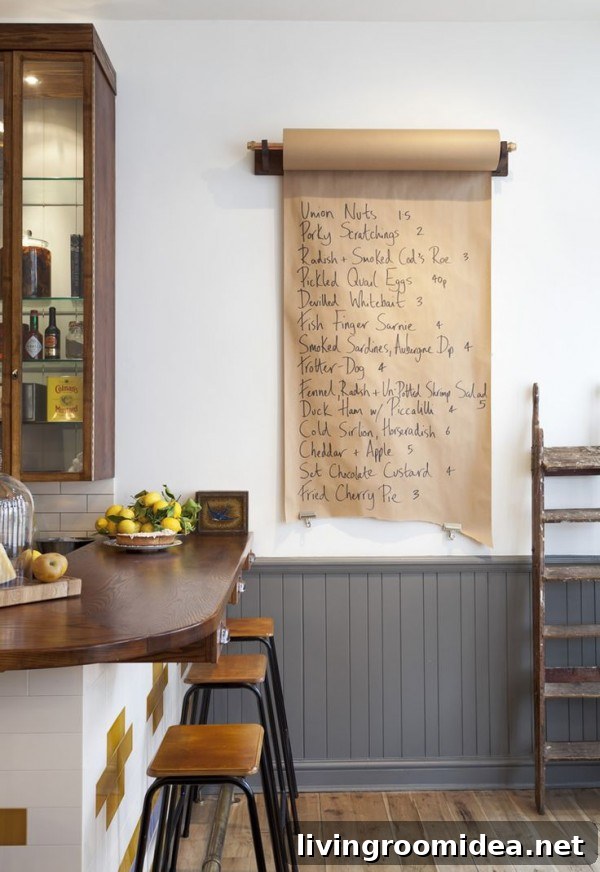 Union Nuts 1.5
Porky Scratchings 2
Radish + Smoked Cod's Roe 3
Pickled Quail Eggs 40p
Devilled Whitebait 3
Fish Finger Sarnie 4
Smoked Sardines, Aubergine Dip 4
Trotter-Dog 4
Fennel, Radish + Un-Potted Shrimp Salad 5
Duck Ham w/ Piccalilli 4
Cold Sirloin, Horseradish 6
Cheddar + Apple 5
Set Chocolate Custard 4
Fried Cherry Pie 3
Colman's
Mustard
livingroomidea.net